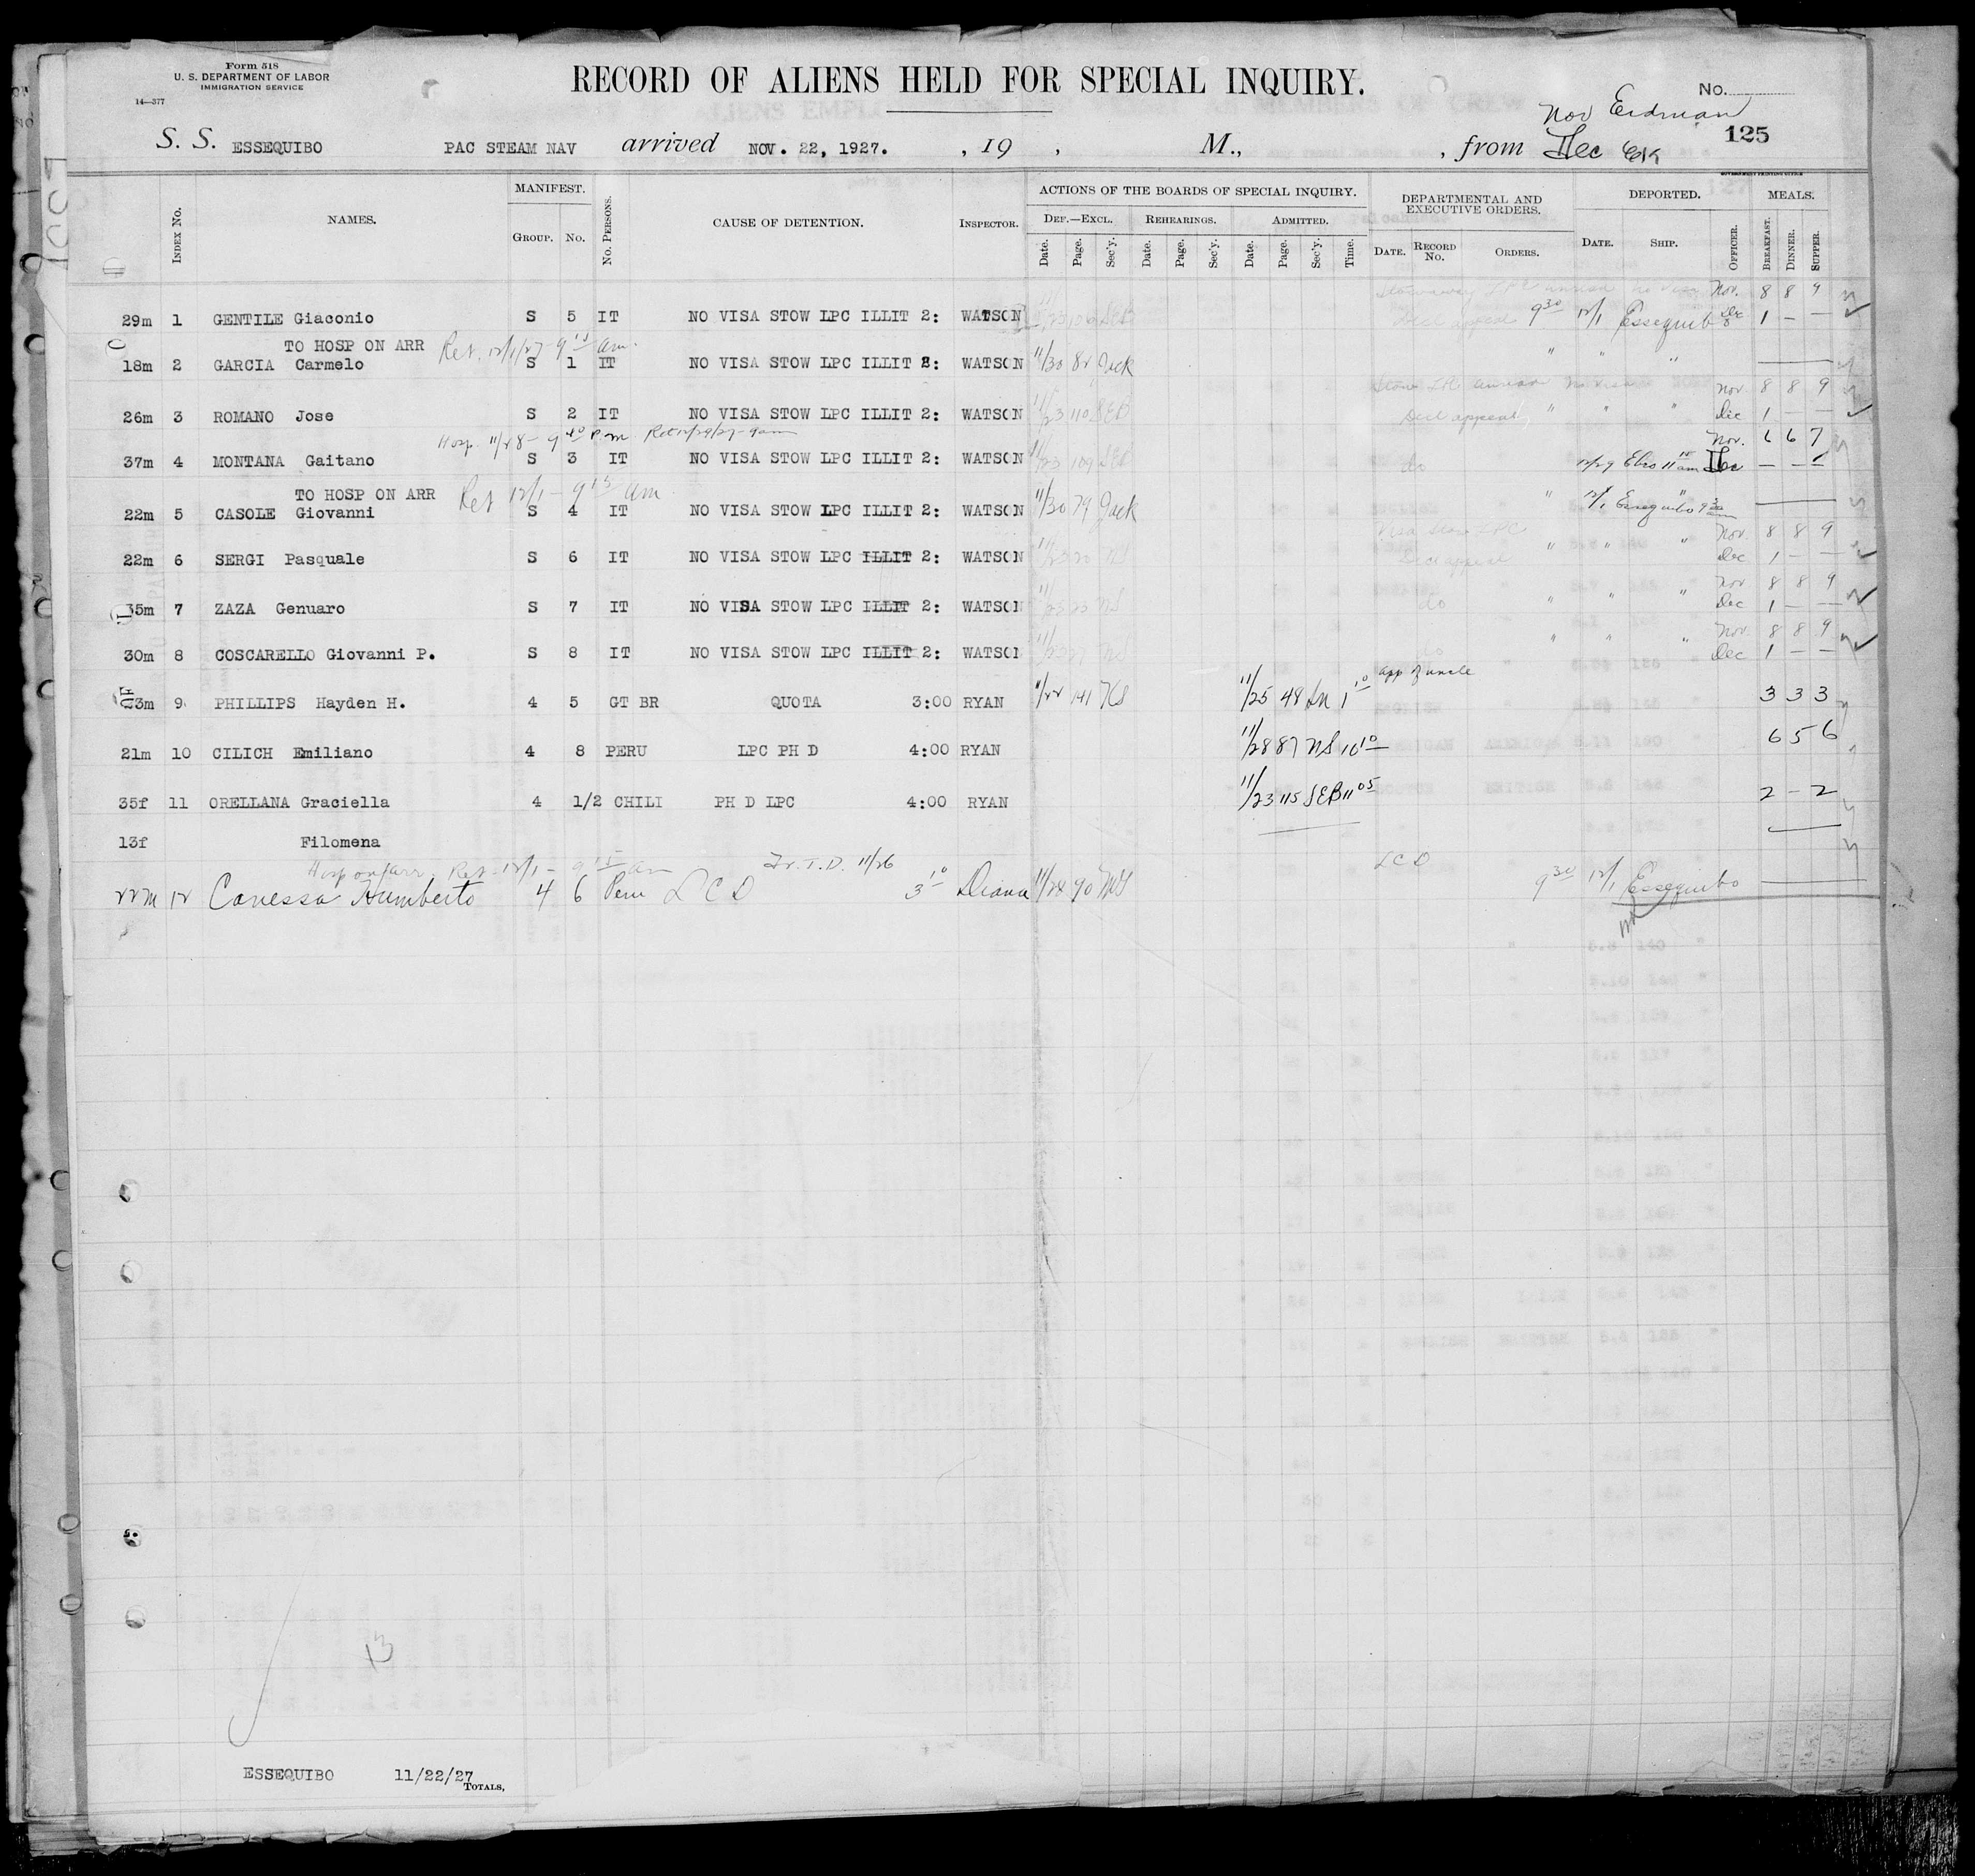 Form 518
U. S. DEPARTMENT OF LABOR
IMMIGRATION SERVICE
14—377
RECORD OF ALIENS HELD FOR SPECIAL INQUIRY.
No.
Nov Erdman
125
S. S. ESSEQUIBO PAC STEAM NAV arrived NOV. 22, 1927. , 19 , M., , from Dec
GOVERNMENT PRINTING OFFICE
INDEX NO. NAMES. MANIFEST. GROUP. NO. NO. PERSONS. CAUSE OF DETENTION. INSPECTOR. ACTIONS OF THE BOARDS OF SPECIAL INQUIRY. DEF.—EXCL. REHEARINGS. ADMITTED. DEPARTMENTAL AND EXECUTIVE ORDERS. DEPORTED. MEALS.
Date. Page. Sec'y. Date. Page. Sec'y. Date. Page. Sec'y. Time. DATE. RECORD NO. ORDERS. DATE. SHIP. OFFICER. BREAKFAST. DINNER. SUPPER.
Nov. 8 8 9
29m 1 GENTILE Giaconio S 5 IT NO VISA STOW LPC ILLIT 2: WATSON 9 30 12/1 Essequibo Dec 1 — —
TO HOSP ON ARR Ret. 12/1/27 - 9 15 am.
18m 2 GARCIA Carmelo S 1 IT NO VISA STOW LPC ILLIT 2: WATSON 11/30 82 Jack " " "
Nov. 8 8 9
26m 3 ROMANO Jose S 2 IT NO VISA STOW LPC ILLIT 2: WATSON 11/23 110 SEB Decl appeal " " " Dec 1 — —
Hosp. 11/28 - 9 40 P.m Ret 12/29/27 - 9am Nov. 6 6 7
37m 4 MONTANA Gaitano S 3 IT NO VISA STOW LPC ILLIT 2: WATSON 11/23 109 SEB do 12/29 Ebro 11 15 am Dec — — —
TO HOSP ON ARR Ret 12/1 - 9 15 am.
22m 5 CASOLE Giovanni S 4 IT NO VISA STOW LPC ILLIT 2: WATSON 11/30 79 Jack " 12/1 Essequibo 9 30 am
Nov 8 8 9
22m 6 SERGI Pasquale S 6 IT NO VISA STOW LPC ILLIT 2: WATSON " " " Dec 1 — —
Nov 8 8 9
35m 7 ZAZA Genuaro S 7 IT NO VISA STOW LPC ILLIT 2: WATSON do " " " Dec 1 — —
Nov. 8 8 9
30m 8 COSCARELLO Giovanni P. S 8 IT NO VISA STOW LPC ILLIT 2: WATSON " " " Dec 1 — —
app of uncle
3m 9 PHILLIPS Hayden H. 4 5 GT BR QUOTA 3:00 RYAN 11/22 141 11/25 48 1 10 3 3 3
21m 10 CILICH Emiliano 4 8 PERU LPC PH D 4:00 RYAN 11/28 87 NS 10 10 6 5 6
35f 11 ORELLANA Graciella 4 1/2 CHILI PH D LPC 4:00 RYAN 11/23 115 SEB 11 05 2 - 2
13f Filomena
Hosp on arr. Ret. 12/1 - 9 15 am Fr. T. D. 11/26 LCD
22m 12 Canessa Humberto 4 6 Peru L C D 3 10 Diana 11/28 90 9 30 12/1 Essequibo
13
ESSEQUIBO 11/22/27
TOTALS,